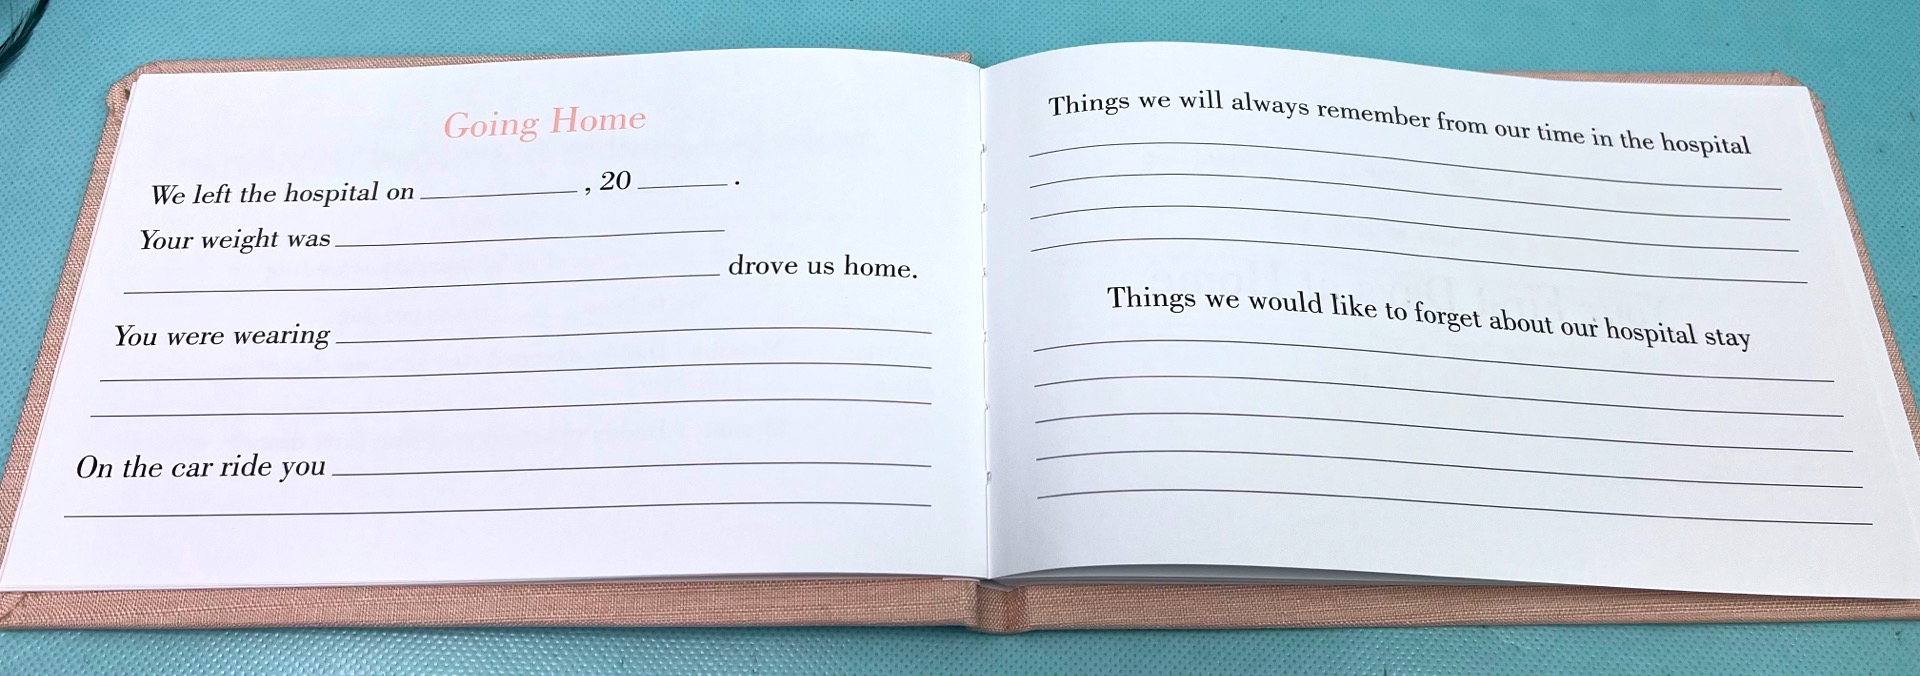 Going Home
We left the hospital on ____________, 20 _______.
Your weight was ______________________________
______________________________ drove us home.
You were wearing ______________________________
On the car ride you ______________________________
Things we will always remember from our time in the hospital
Things we would like to forget about our hospital stay